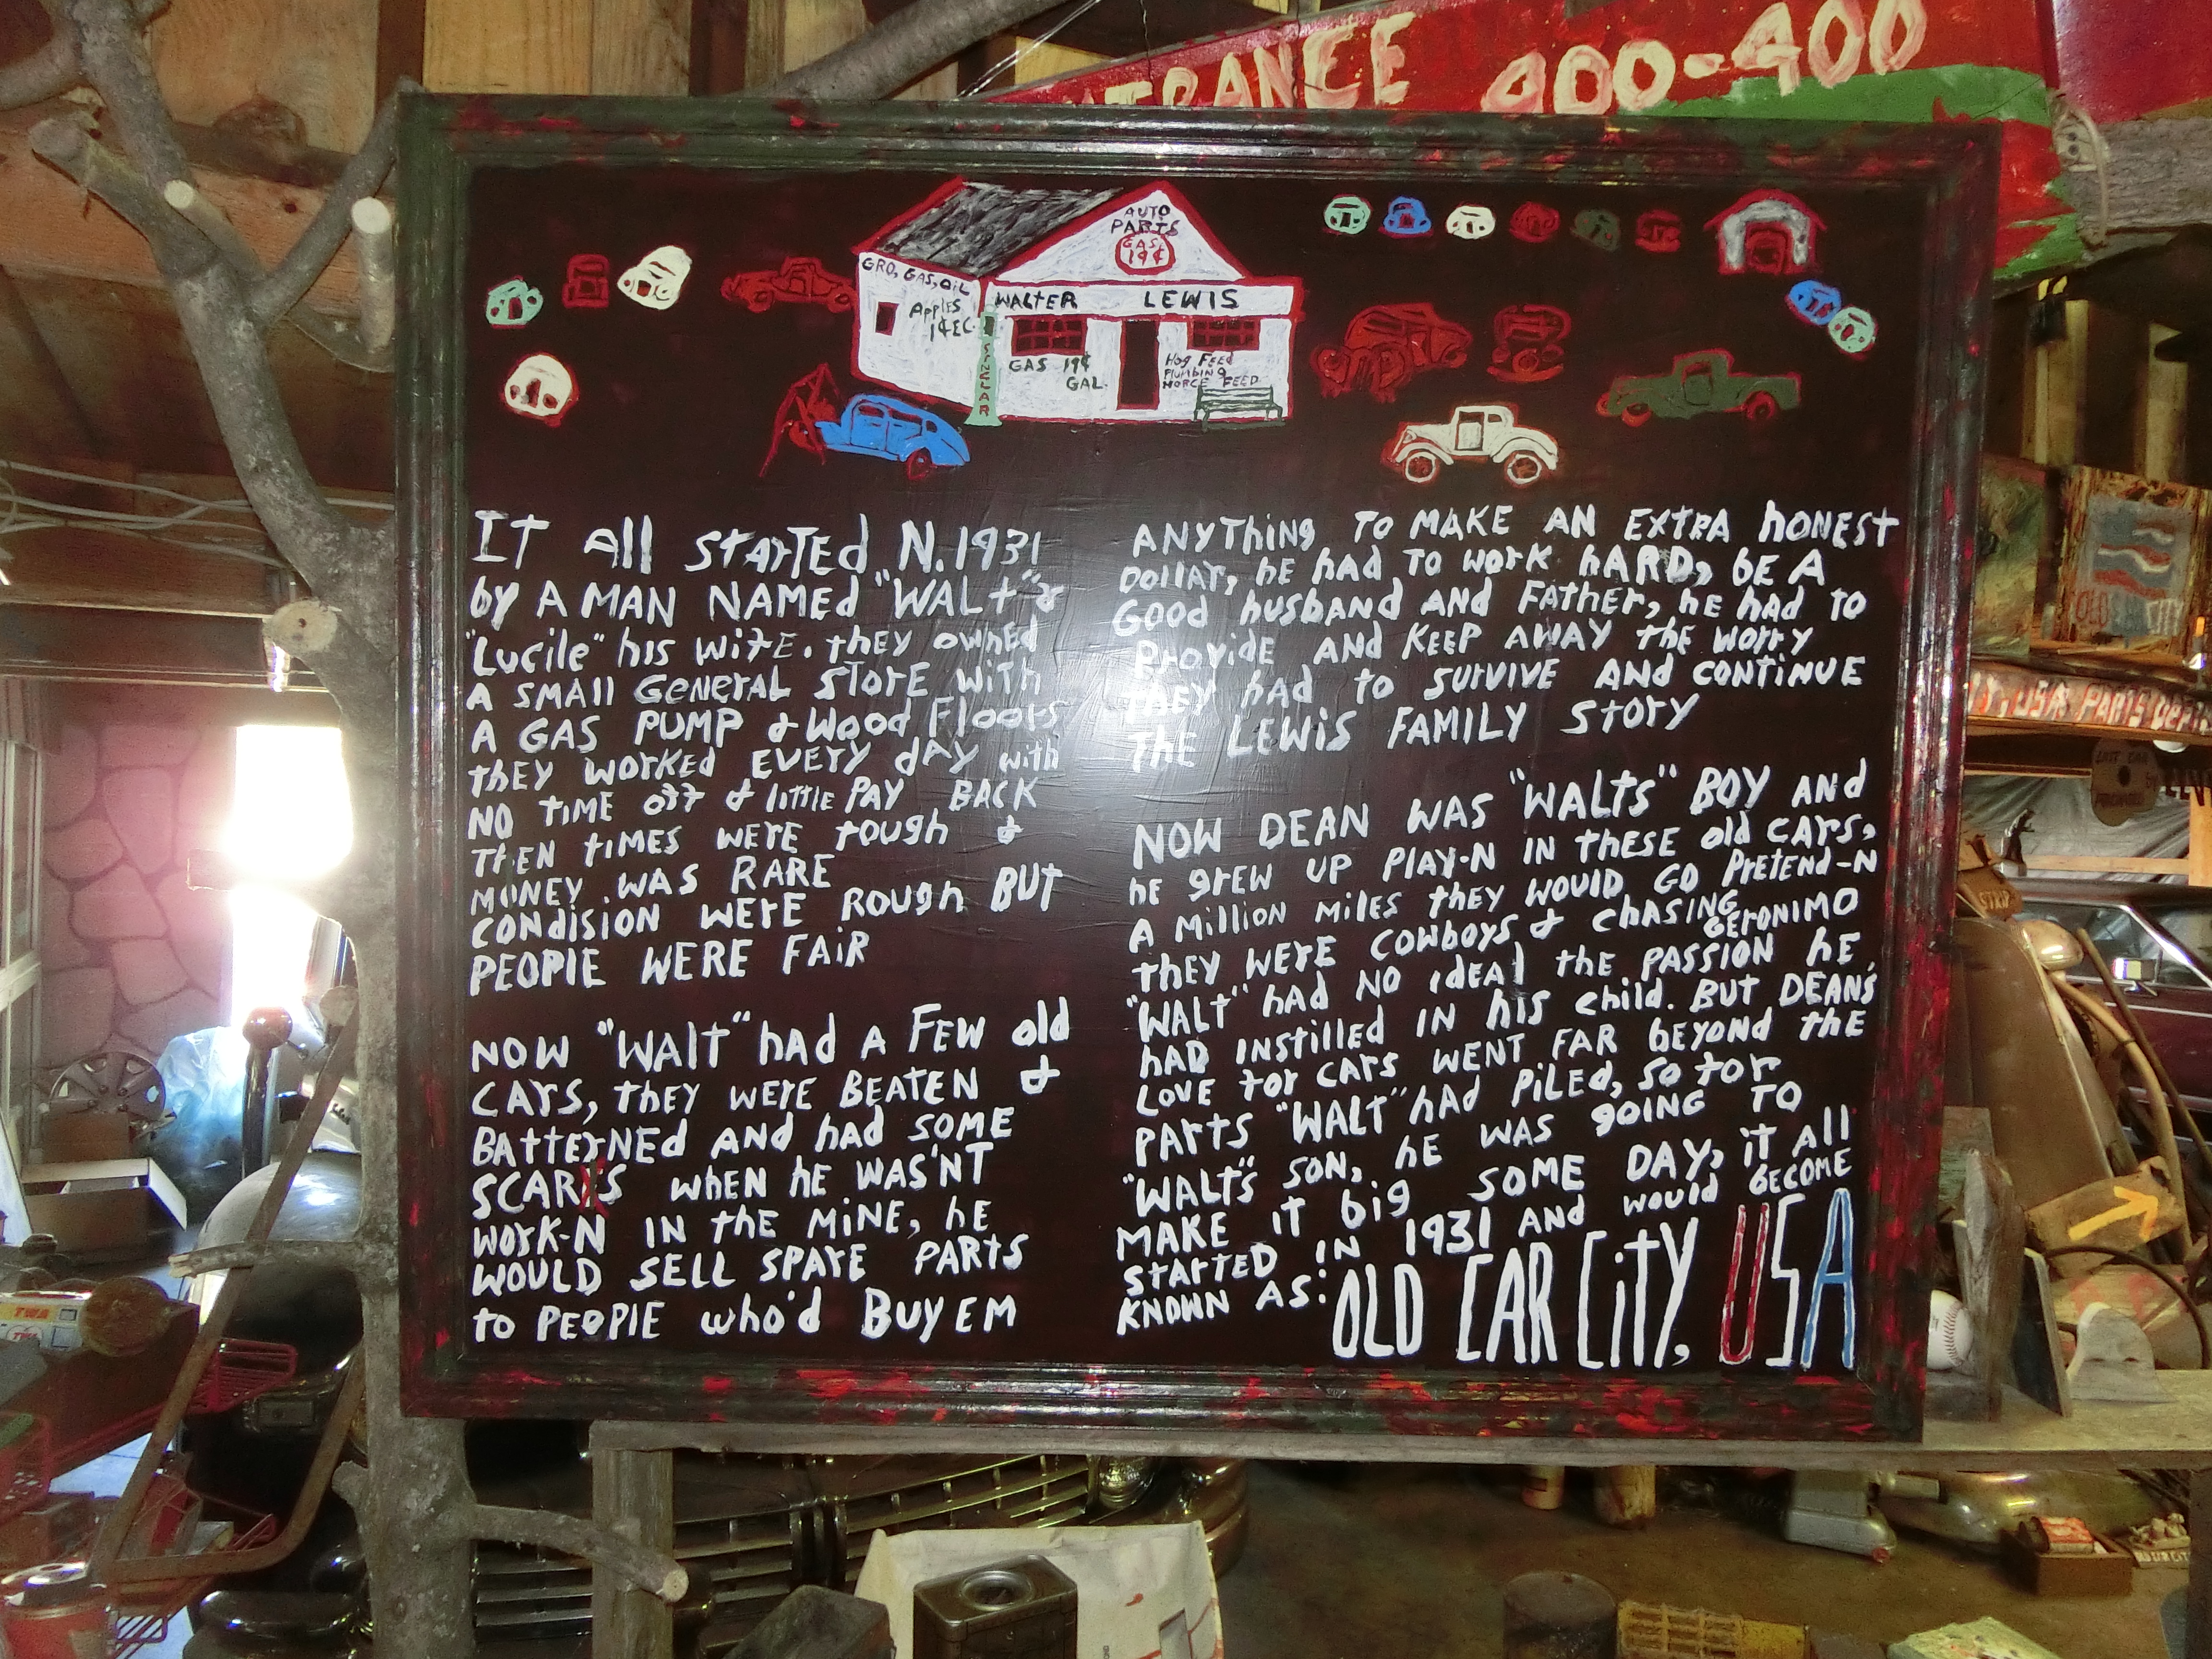 400-400
AUTO
PARTS
GAS
19¢
GRO, GAS, OiL
Apples
1¢EC.
WALTER LEWIS
SINCLAR
GAS 19¢
GAL.
Hog FEED
Plumbing
HORCE FEED
IT All STARTEd N. 1931
by A MAN NAMEd "WALt" &
"Lucile" his wifE. they owned
A SMAll GENERAL STorE WiTh
A GAS PUMP & Wood Floors
thEy workEd EVERY dAY with
NO TiME off & little PAY BACK
ThEN tiMES WERE tough &
MONEY WAS RARE
CONdisioN WERE Rough BUt
PEOPlE WERE FAiR
NOW "WAlT" had A FEW old
CArS, thEy WErE BEATEN &
BATTErNEd AND had SOME
SCARS whEN hE WAS'NT
WOrk-N IN thE MiNE, hE
WOULD SELL SPArE PARTS
to PEOPlE who'd BUY EM
ANYThiNg To MAKE AN EXTRA hONEST
DollAr, hE hAd TO work hARD, bE A
Good husbANd AND FAThEr, hE hAd TO
ProvidE AND KEEP AWAY thE worry
THEY hAd to survivE AND CONTiNUE
ThE LEWiS FAMiLY STory
NOW DEAN WAS "WALTS" BOY AND
hE grEW UP PlAY-N IN thESE old CArS,
A Million MilES thEY WOULD GO PrETENd-N
thEY WErE COWboyS & ChASING
GERONIMO
"WALT" hAd NO idEAl thE PASSioN hE
hAd iNSTillEd IN his Child. BUT DEAN'S
LOVE for CArS WENT FAR bEyoNd thE
PARTS "WALT" hAd PiLEd, SO for
"WALT'S SON, hE WAS goiNg TO
MAKE iT big SOME DAY, iT All
STArTED iN 1931 AND would bECOME
KNOWN AS: OLD CAR CiTY, USA
TWA